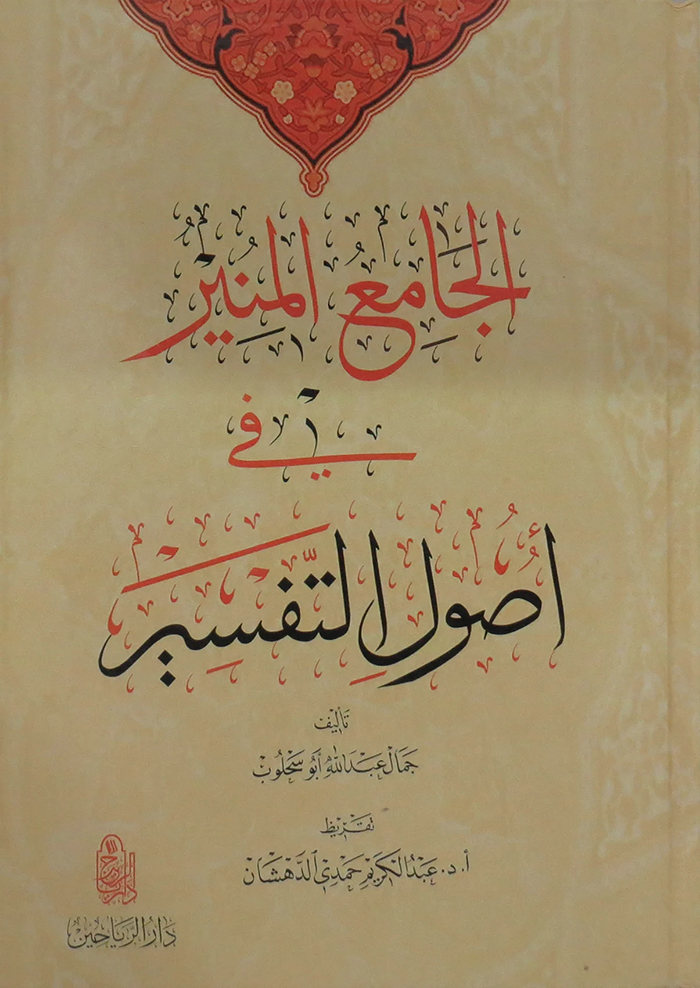 الجَامِعُ المُنِيْرُ
في
أُصُولِ التَّفْسِيرِ
تأليف
جمال عبد الله أبو سحلوب
تقريظ
أ.د. عبد الكريم حمدي الدهشان
دار الرياحين